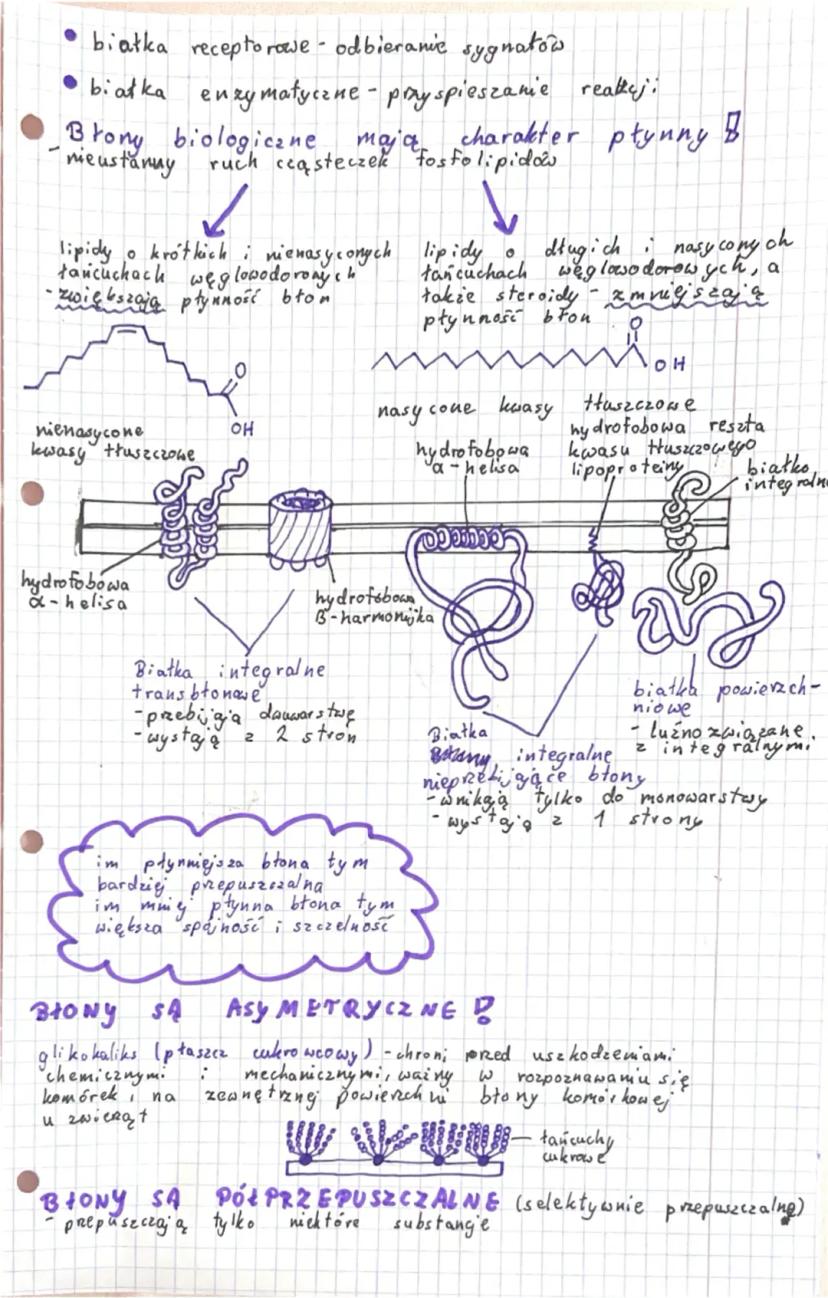 • białka receptorowe - odbieranie sygnałów
• białka enzymatyczne - przyspieszanie reakcji
Błony biologiczne mają charakter płynny!
- nieustanny ruch cząsteczek fosfolipidów
lipidy o krótkich i nienasyconych
łańcuchach węglowodoronych
- zwiększają płynność błon
lipidy o długich i nasyconych
łańcuchach węglowodorowych, a
także steroidy - zmniejszają
płynność błon
O
OH
nienasycone
kwasy tłuszczowe
O
OH
nasycone kwasy tłuszczowe
hydrofobowa
α-helisa
hydrofobowa reszta
kwasu tłuszczowego
lipoproteiny
białko
integraln
hydrofobowa
α-helisa
hydrofobowa
β-harmonijka
Białka integralne
transbłonowe
- przebijają dwuwarstwę
- wystają z 2 stron
Białka
integralne
nieprzebijające błony
- wnikają tylko do monowarstwy
- wystają z 1 strony
białka powierzch-
niowe
- luźno związane
z integralnymi
im płynniejsza błona tym
bardziej przepuszczalna
im mniej płynna błona tym
większa spójność i szczelność
BŁONY SĄ ASYMETRYCZNE!
glikokaliks (płaszcz cukrowcowy) - chroni przed uszkodzeniami
chemicznymi i mechanicznymi, ważny w rozpoznawaniu się
komórek, na zewnętrznej powierzchni błony komórkowej
u zwierząt
łańcuchy
cukrowe
BŁONY SĄ PÓŁPRZEPUSZCZALNE (selektywnie przepuszczalne)
- przepuszczają tylko niektóre substancje